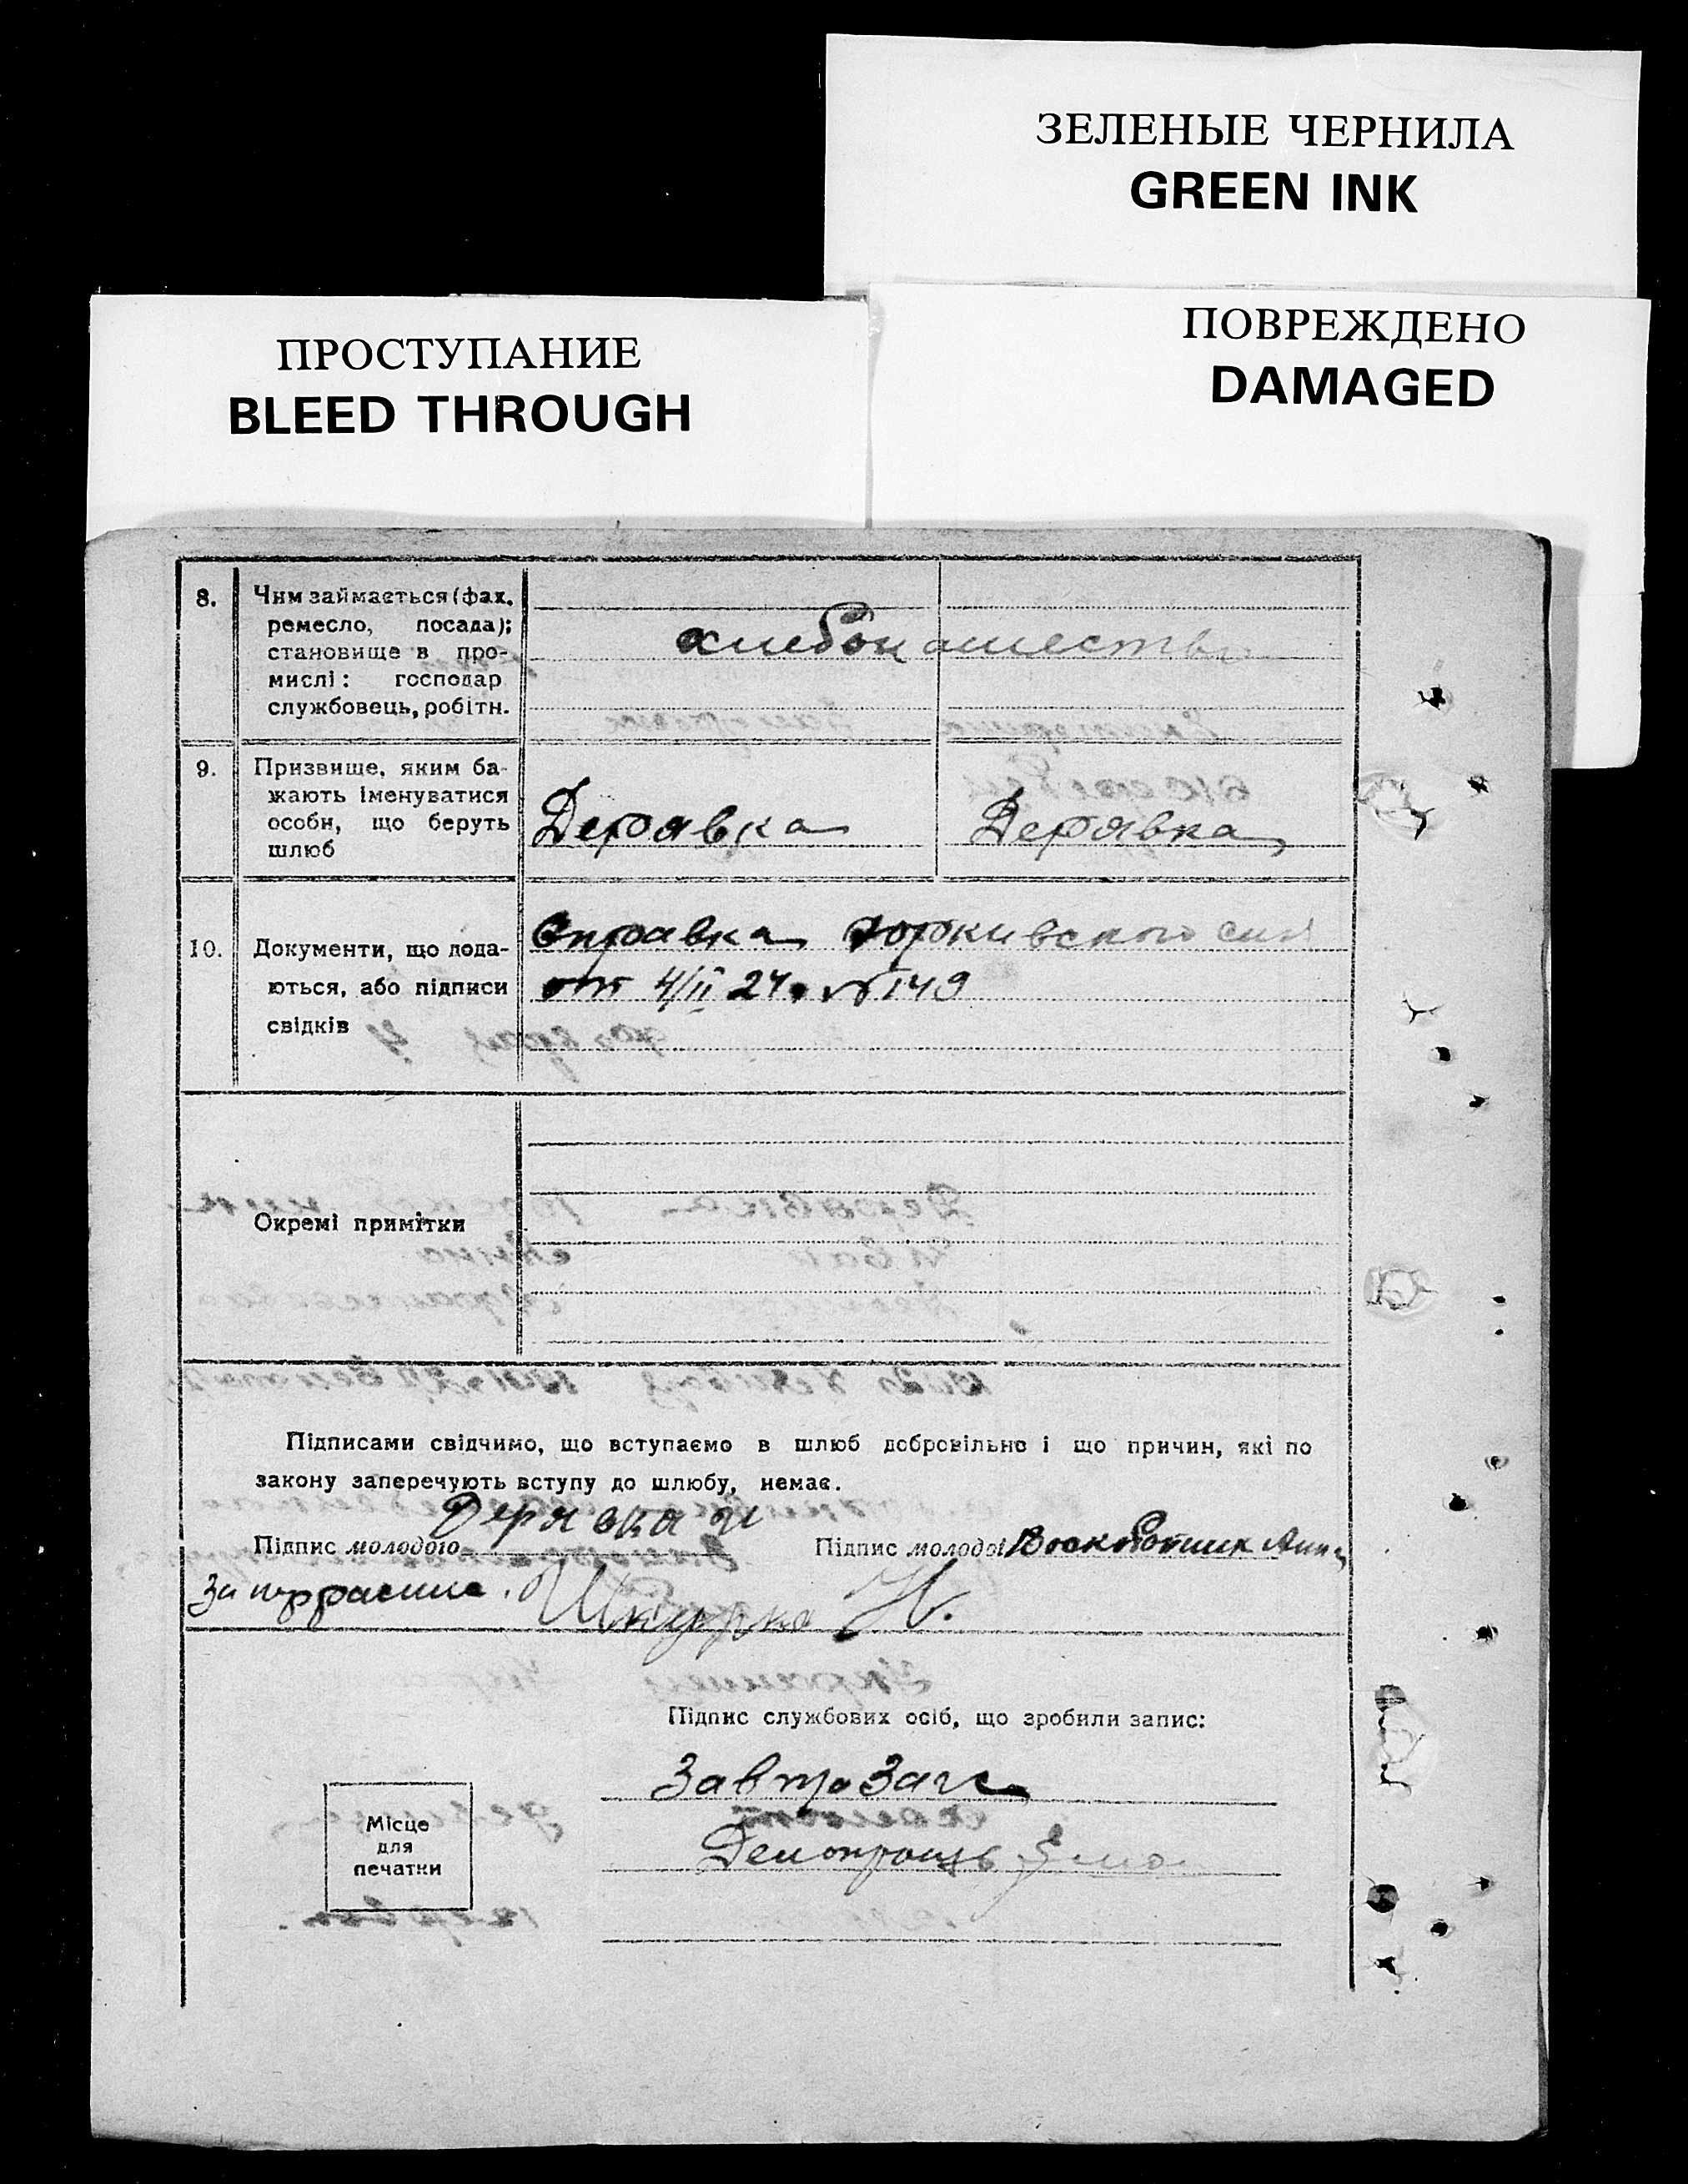 ЗЕЛЕНЫЕ ЧЕРНИЛА
GREEN INK
ПРОСТУПАНИЕ
BLEED THROUGH
ПОВРЕЖДЕНО
DAMAGED
8. Чим займається (фах,
ремесло, посада);
становище в про-
мислі: господар
службовець, робітн.
хлебопашество
9. Призвище, яким ба-
жають іменуватися
особи, що беруть
шлюб
Дерявка Дерявка
10. Документи, що дода-
ються, або підписи
свідків
Справка
от 4/II 24 № 149
Окремі примітки
Підписами свідчимо, що вступаємо в шлюб добровільно і що причин, які по
закону заперечують вступу до шлюбу, немає.
Підпис молодого Дерявка И Підпис молодої Воскобойник Анна
Шкурко Н.
Підпис службових осіб, що зробили запис:
Завтро Загс
Місце
для
печатки